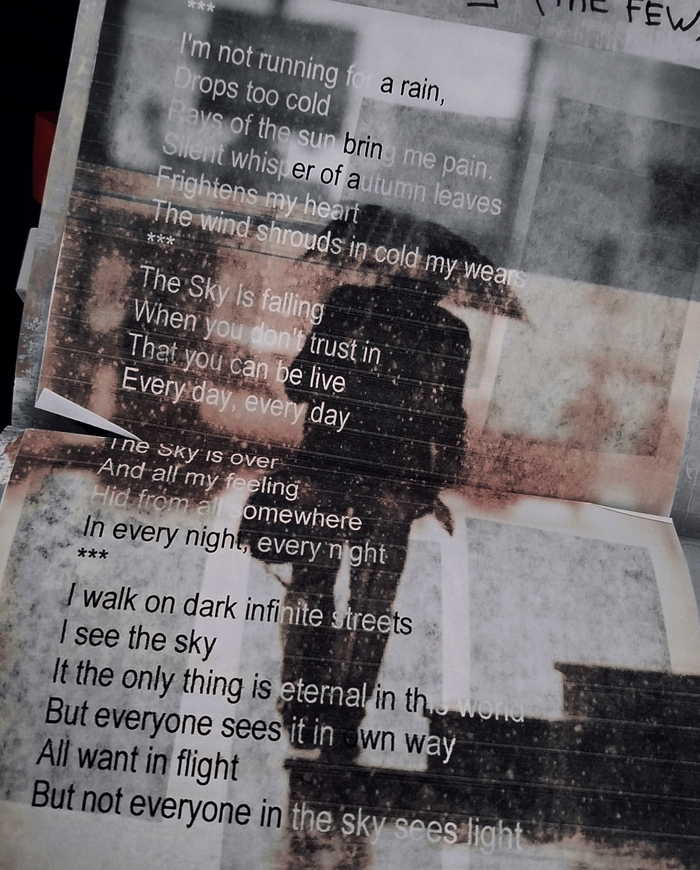 (THE FEW,
***
I'm not running for a rain,
Drops too cold
Rays of the sun bring me pain.
Silent whisper of autumn leaves
Frightens my heart
The wind shrouds in cold my wears
***
The Sky Is falling
When you don't trust in
That you can be live
Every day, every day
The Sky is over
And all my feeling
Hid from all somewhere
In every night, every night
***
I walk on dark infinite streets
I see the sky
It the only thing is eternal in this world
But everyone sees it in own way
All want in flight
But not everyone in the sky sees light